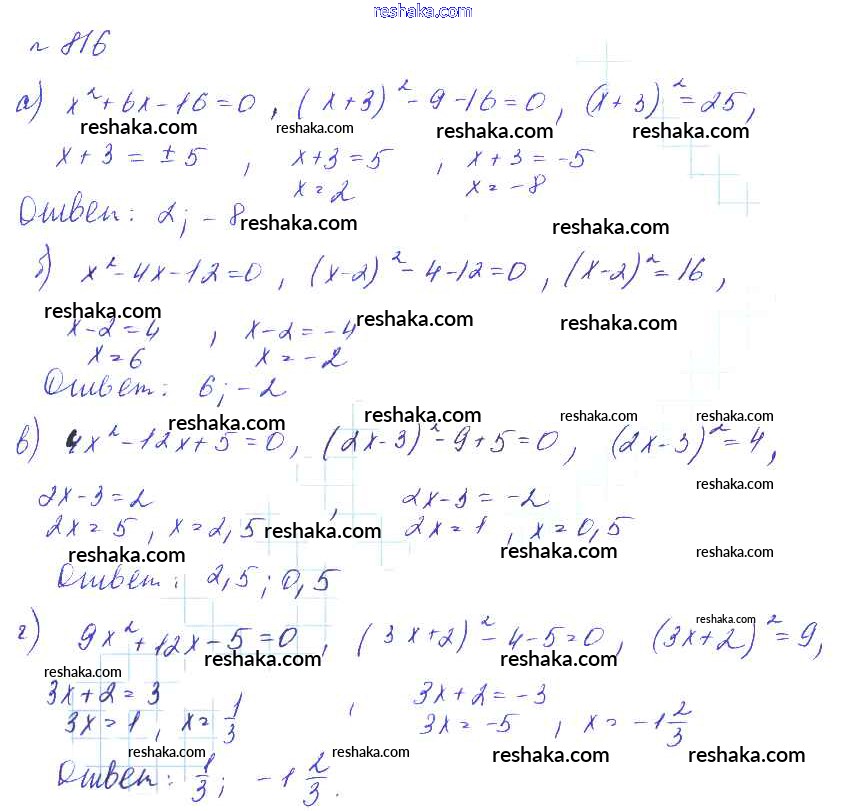 reshaka.com
№ 816
а) x² + 6x - 16 = 0, (x+3)² - 9 - 16 = 0, (x+3)² = 25,
reshaka.com reshaka.com reshaka.com reshaka.com
x + 3 = ± 5, x+3 = 5, x+3 = -5
x = 2 x = -8
Ответ: 2; -8 reshaka.com reshaka.com
б) x² - 4x - 12 = 0, (x-2)² - 4 - 12 = 0, (x-2)² = 16,
reshaka.com reshaka.com reshaka.com
x - 2 = 4, x - 2 = -4
x = 6 x = -2
Ответ: 6; -2
reshaka.com reshaka.com reshaka.com reshaka.com
в) 4x² - 12x + 5 = 0, (2x-3)² - 9 + 5 = 0, (2x-3)² = 4,
reshaka.com
2x - 3 = 2, 2x - 3 = -2
2x = 5, x = 2,5 2x = 1, x = 0,5
reshaka.com reshaka.com reshaka.com reshaka.com
Ответ: 2,5; 0,5
reshaka.com
г) 9x² + 12x - 5 = 0, (3x+2)² - 4 - 5 = 0, (3x+2)² = 9,
reshaka.com reshaka.com reshaka.com reshaka.com
3x + 2 = 3, 3x + 2 = -3
3x = 1, x = 1/3 3x = -5, x = -1 2/3
reshaka.com reshaka.com reshaka.com reshaka.com
Ответ: 1/3; -1 2/3.